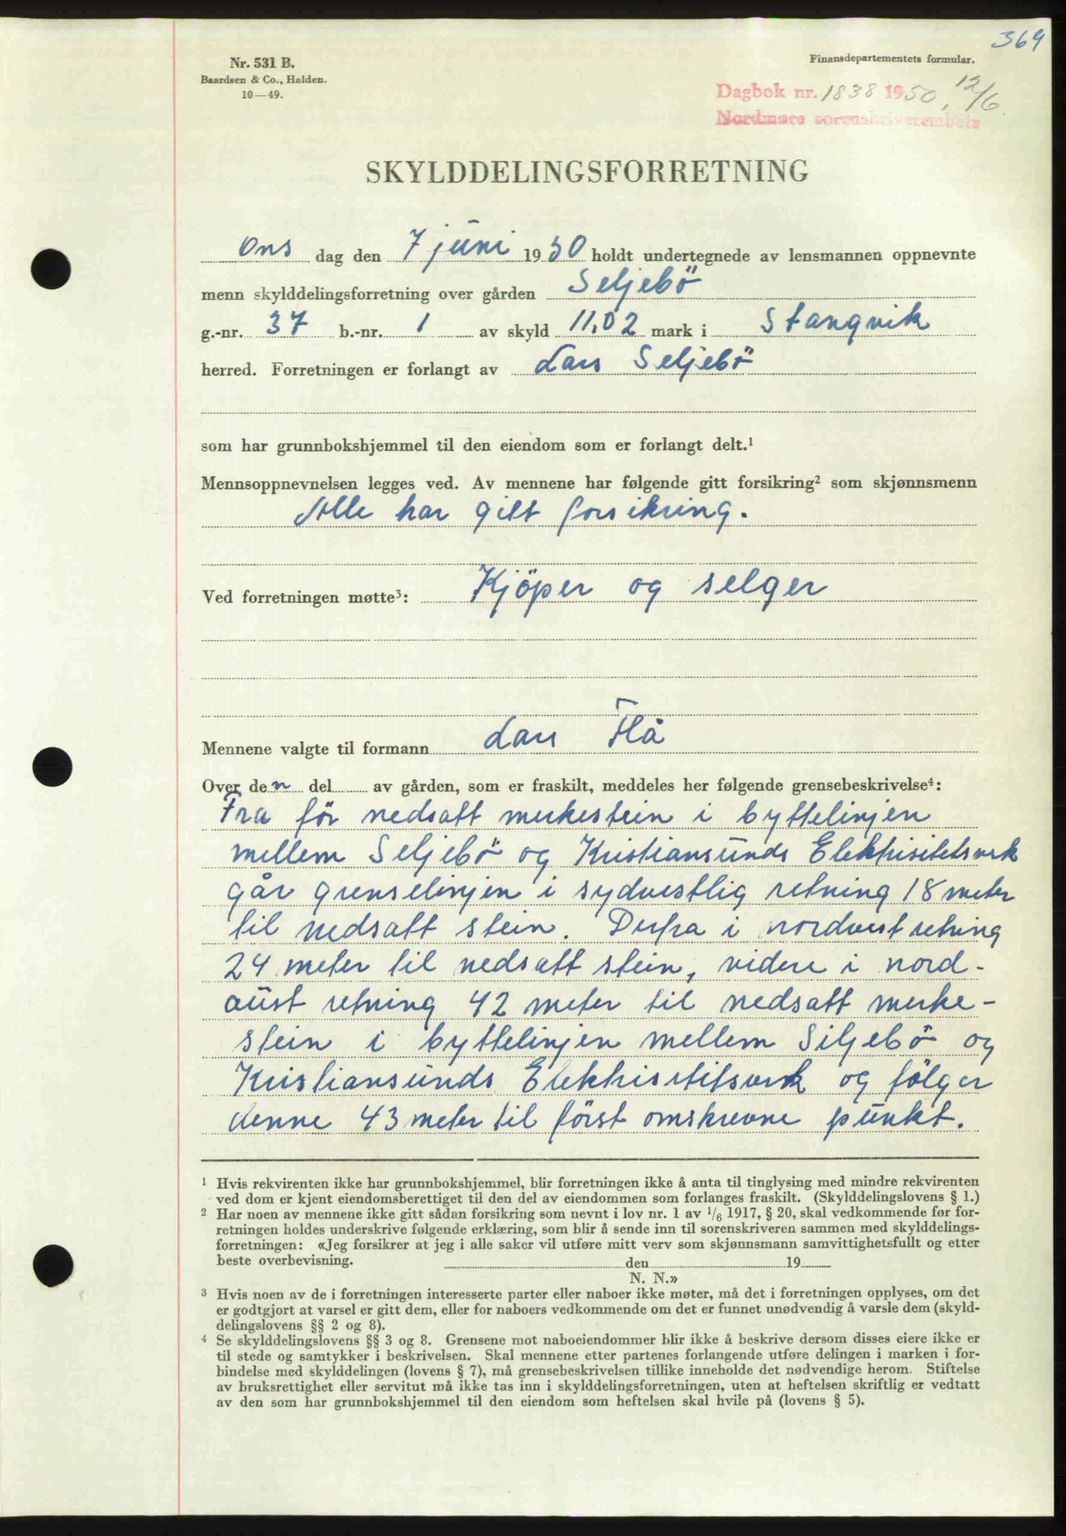 369
Nr. 531 B.
Baardsen & Co., Halden.
10—49.
Finansdepartementets formular.
Dagbok nr. 1838 1950, 12/6
Nordmøre sorenskriverembete
SKYLDDELINGSFORRETNING
Ons dag den 7 juni 1950 holdt undertegnede av lensmannen oppnevnte
menn skylddelingsforretning over gården Seljebö
g.-nr. 37 b.-nr. 1 av skyld 11,02 mark i Stangvik
herred. Forretningen er forlangt av Lars Seljebö
som har grunnbokshjemmel til den eiendom som er forlangt delt.¹
Mennsoppnevnelsen legges ved. Av mennene har følgende gitt forsikring² som skjønnsmenn
Alle har gitt forsikring.
Ved forretningen møtte³: Kjöper og selger
Mennene valgte til formann Lars Flå
Over den del av gården, som er fraskilt, meddeles her følgende grensebeskrivelse⁴:
Fra för nedsatt merkestein i byttelinjen
mellem Seljebö og Kristiansunds Elektrisitetsverk
går grenselinjen i sydvestlig retning 18 meter
til nedsatt stein. Derfra i nordvest retning
24 meter til nedsatt stein, videre i nord-
aust retning 42 meter til nedsatt merke-
stein i byttelinjen mellem Siljebö og
Kristiansunds Elektrisitetsverk og fölger
denne 43 meter til först omskrevne punkt.
¹ Hvis rekvirenten ikke har grunnbokshjemmel, blir forretningen ikke å anta til tinglysing med mindre rekvirenten
ved dom er kjent eiendomsberettiget til den del av eiendommen som forlanges fraskilt. (Skylddelingslovens § 1.)
² Har noen av mennene ikke gitt sådan forsikring som nevnt i lov nr. 1 av 1/6 1917, § 20, skal vedkommende før for-
retningen holdes underskrive følgende erklæring, som blir å sende inn til sorenskriveren sammen med skylddelings-
forretningen: «Jeg forsikrer at jeg i alle saker vil utføre mitt verv som skjønnsmann samvittighetsfullt og etter
beste overbevisning. den 19
N. N.»
³ Hvis noen av de i forretningen interesserte parter eller naboer ikke møter, må det i forretningen opplyses, om det
er godtgjort at varsel er gitt dem, eller for naboers vedkommende om det er funnet unødvendig å varsle dem (skyld-
delingslovens §§ 2 og 8).
⁴ Se skylddelingslovens §§ 3 og 8. Grensene mot naboeiendommer blir ikke å beskrive dersom disses eiere ikke er
til stede og samtykker i beskrivelsen. Skal mennene etter partenes forlangende utføre delingen i marken i for-
bindelse med skylddelingen (lovens § 7), må grensebeskrivelsen tillike inneholde det nødvendige herom. Stiftelse
av bruksrettighet eller servitut må ikke tas inn i skylddelingsforretningen, uten at heftelsen skriftlig er vedtatt
av den som har grunnbokshjemmel til den eiendom som heftelsen skal hvile på (lovens § 5).